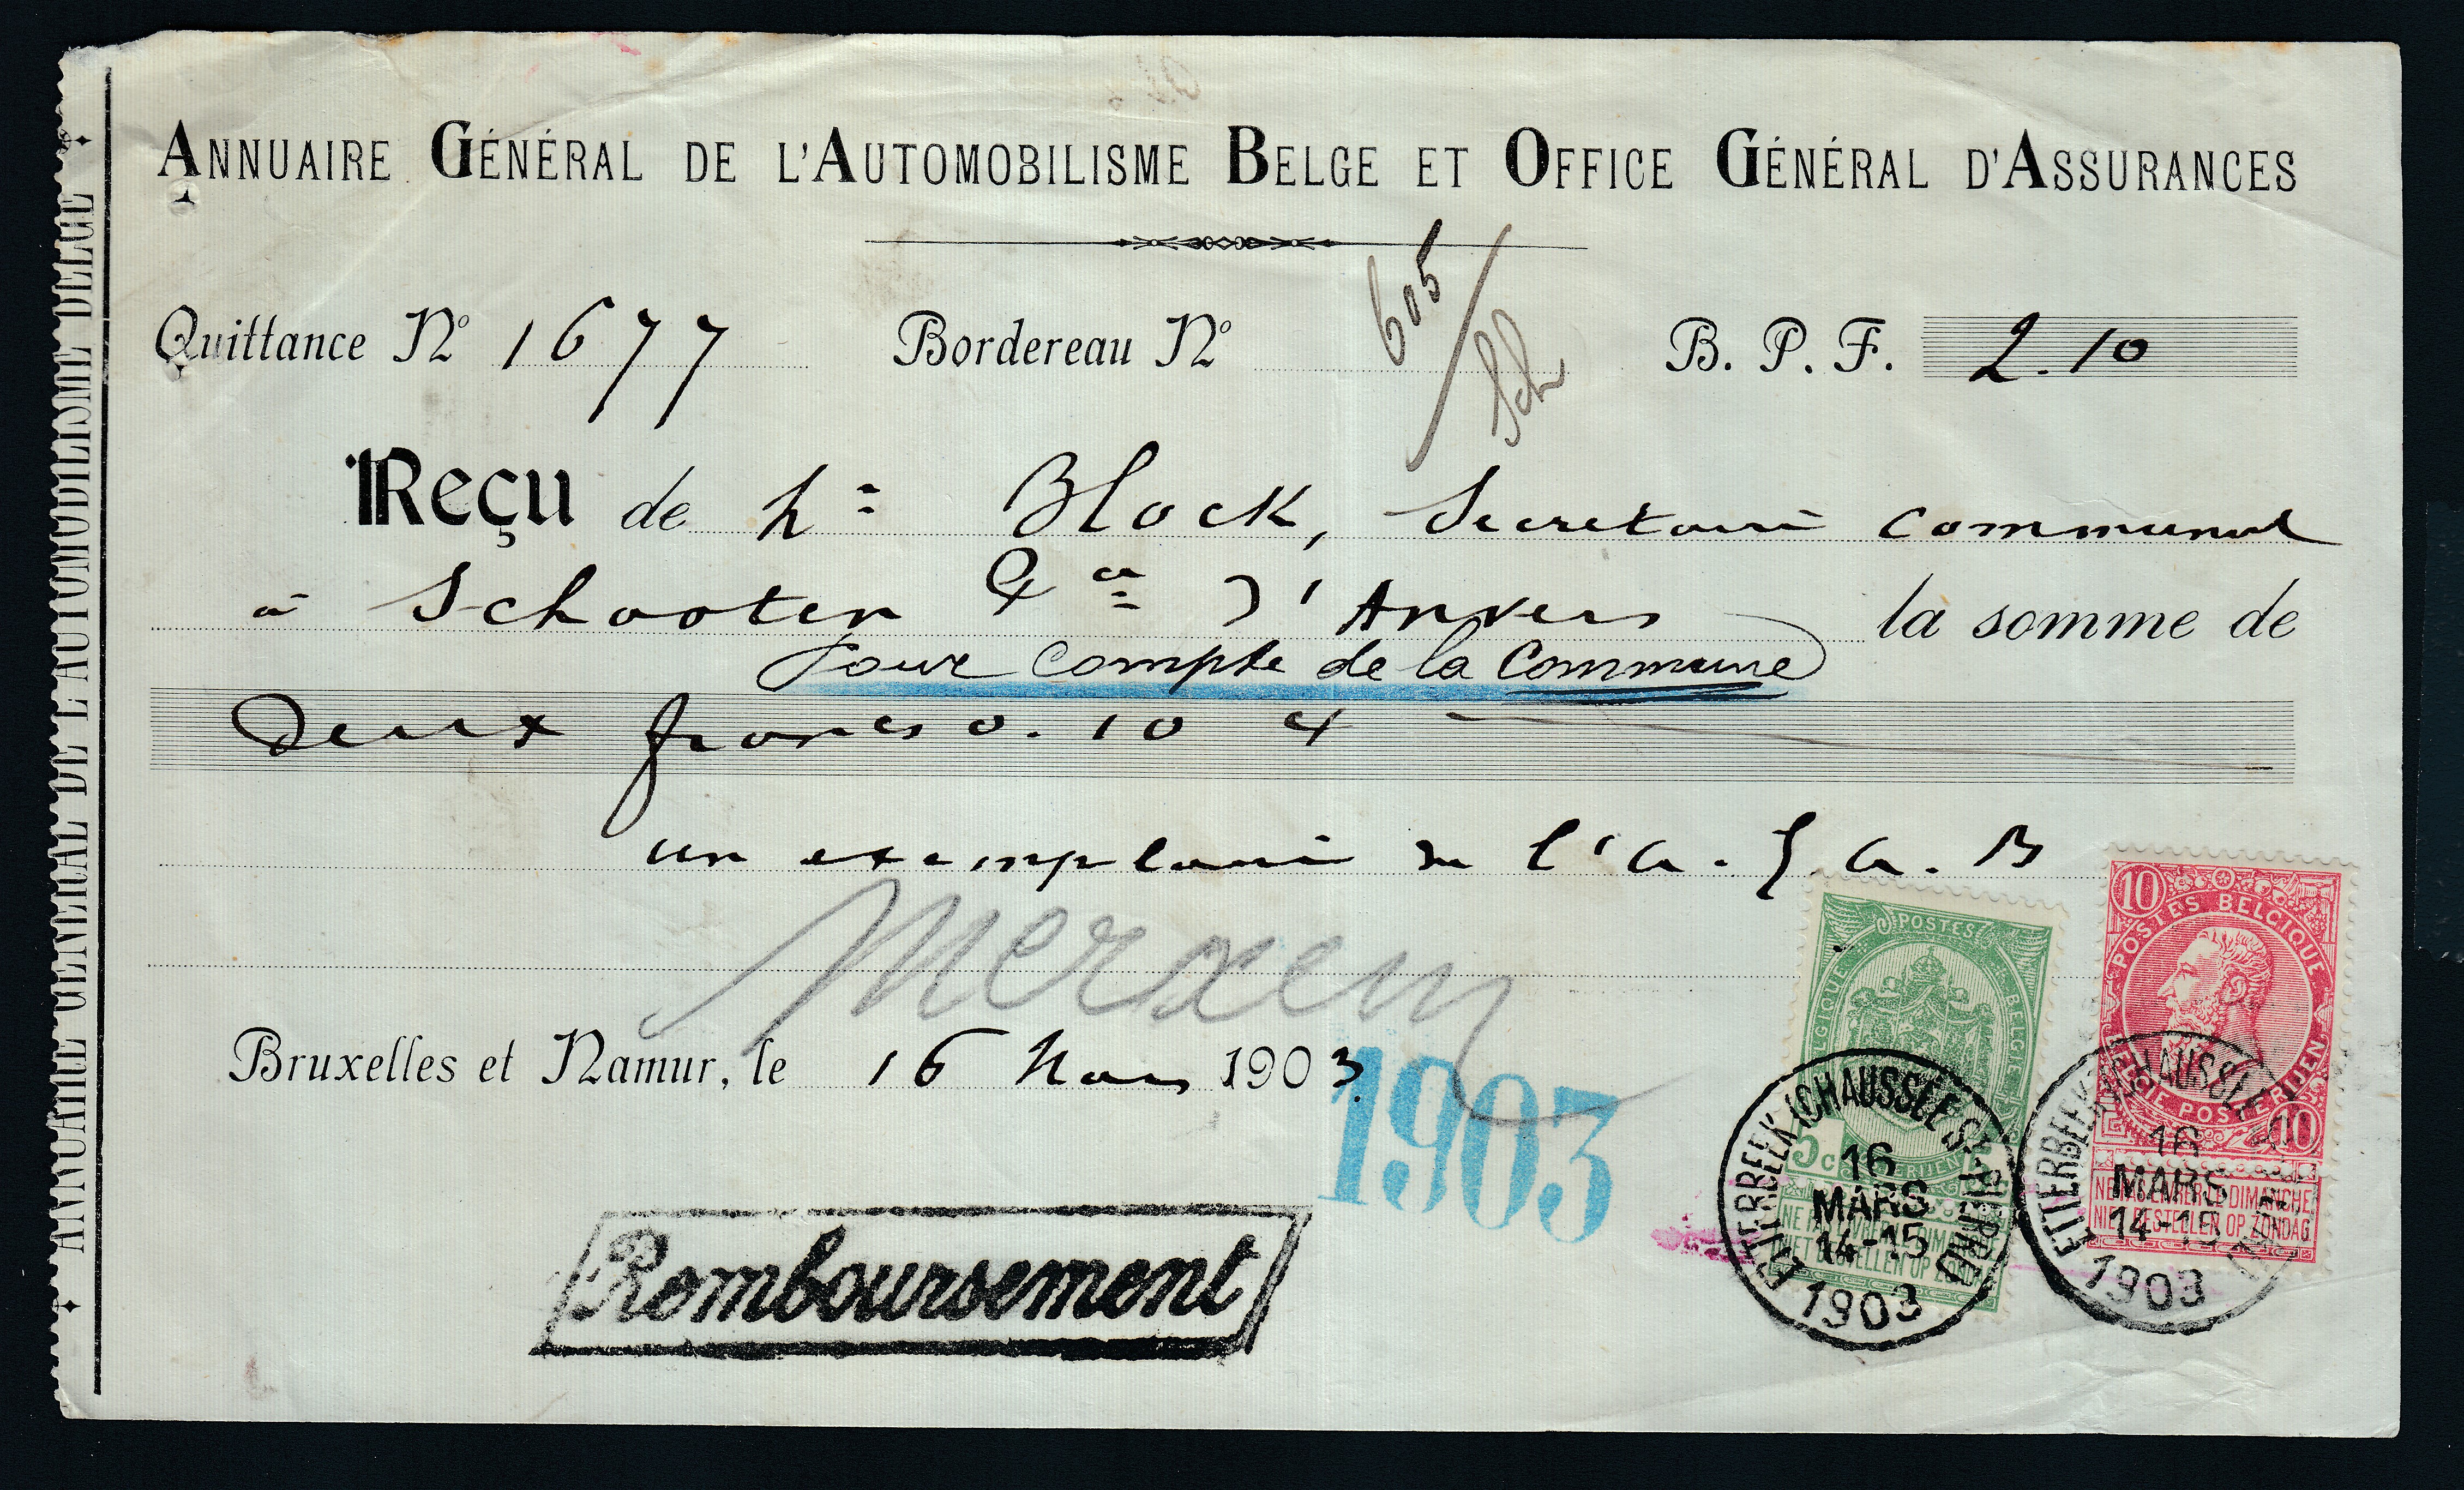 ANNUAIRE GÉNÉRAL DE L'AUTOMOBILISME BELGE ET OFFICE GÉNÉRAL D'ASSURANCES
Quittance Nº 1677 Bordereau Nº 605 / Sch B. P. F. 2.10
Reçu de Mr Block, Secretaire communal
à Schooten Pce d'Anvers la somme de
Pour compte de la Commune
Deux francs 0.10 ct
un exemplaire de l'A.G.A.B
Merxem
Bruxelles et Namur, le 16 Mars 1903
1903
Remboursement
POSTES
BELGIQUE BELGIË
5c
NE PAS LIVRER LE DIMANCHE
NIET BESTELLEN OP ZONDAG
ETTERBEEK (CHAUSSÉE St PIERRE)
16
MARS
14-15
1903
10
POSTES BELGIQUE
BELGIE POSTERIJEN
10
NE PAS LIVRER LE DIMANCHE
NIET BESTELLEN OP ZONDAG
ETTERBEEK (CHAUSSÉE St PIERRE)
16
MARS
14-15
1903
ANNUAIRE GÉNÉRAL DE L'AUTOMOBILISME BELGE